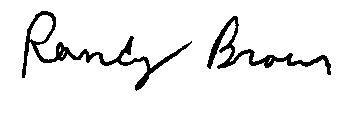 Randy Brown